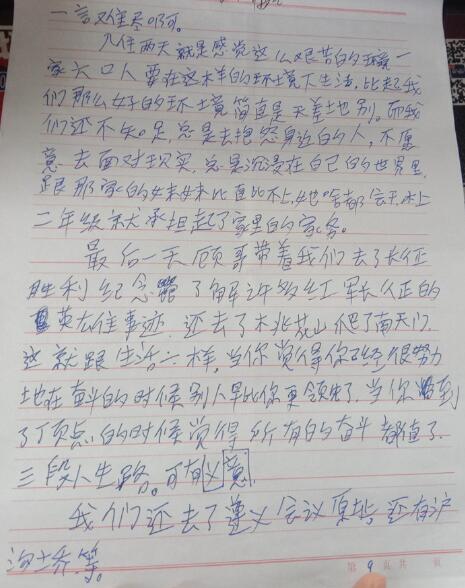 一言难尽啊。
入住两天就是感觉这么艰苦的环境一
家六口人要在这样的环境下生活,比起我
们那么好的环境简直是天差地别。而我
们还不知足,总是去抱怨身边的人,不愿
意去面对现实,总是沉浸在自己的世界里,
跟那家的妹妹比直比不上,她啥都会干,上
二年级就承担起了家里的家务。
最后一天顾哥带着我们去了长征
胜利纪念馆了解许多红军长征的
英雄事迹,还去了木兆山爬了南天门,
这就跟生活一样,当你觉得你已经很努力
地在奋斗的时候别人早比你更领先了,当你爬到
了顶点的时候觉得所有的奋斗都值了。
三段人生路。可有义意
我们还去了遵义会议原址,还有泸
沟桥等。
第9页共 页